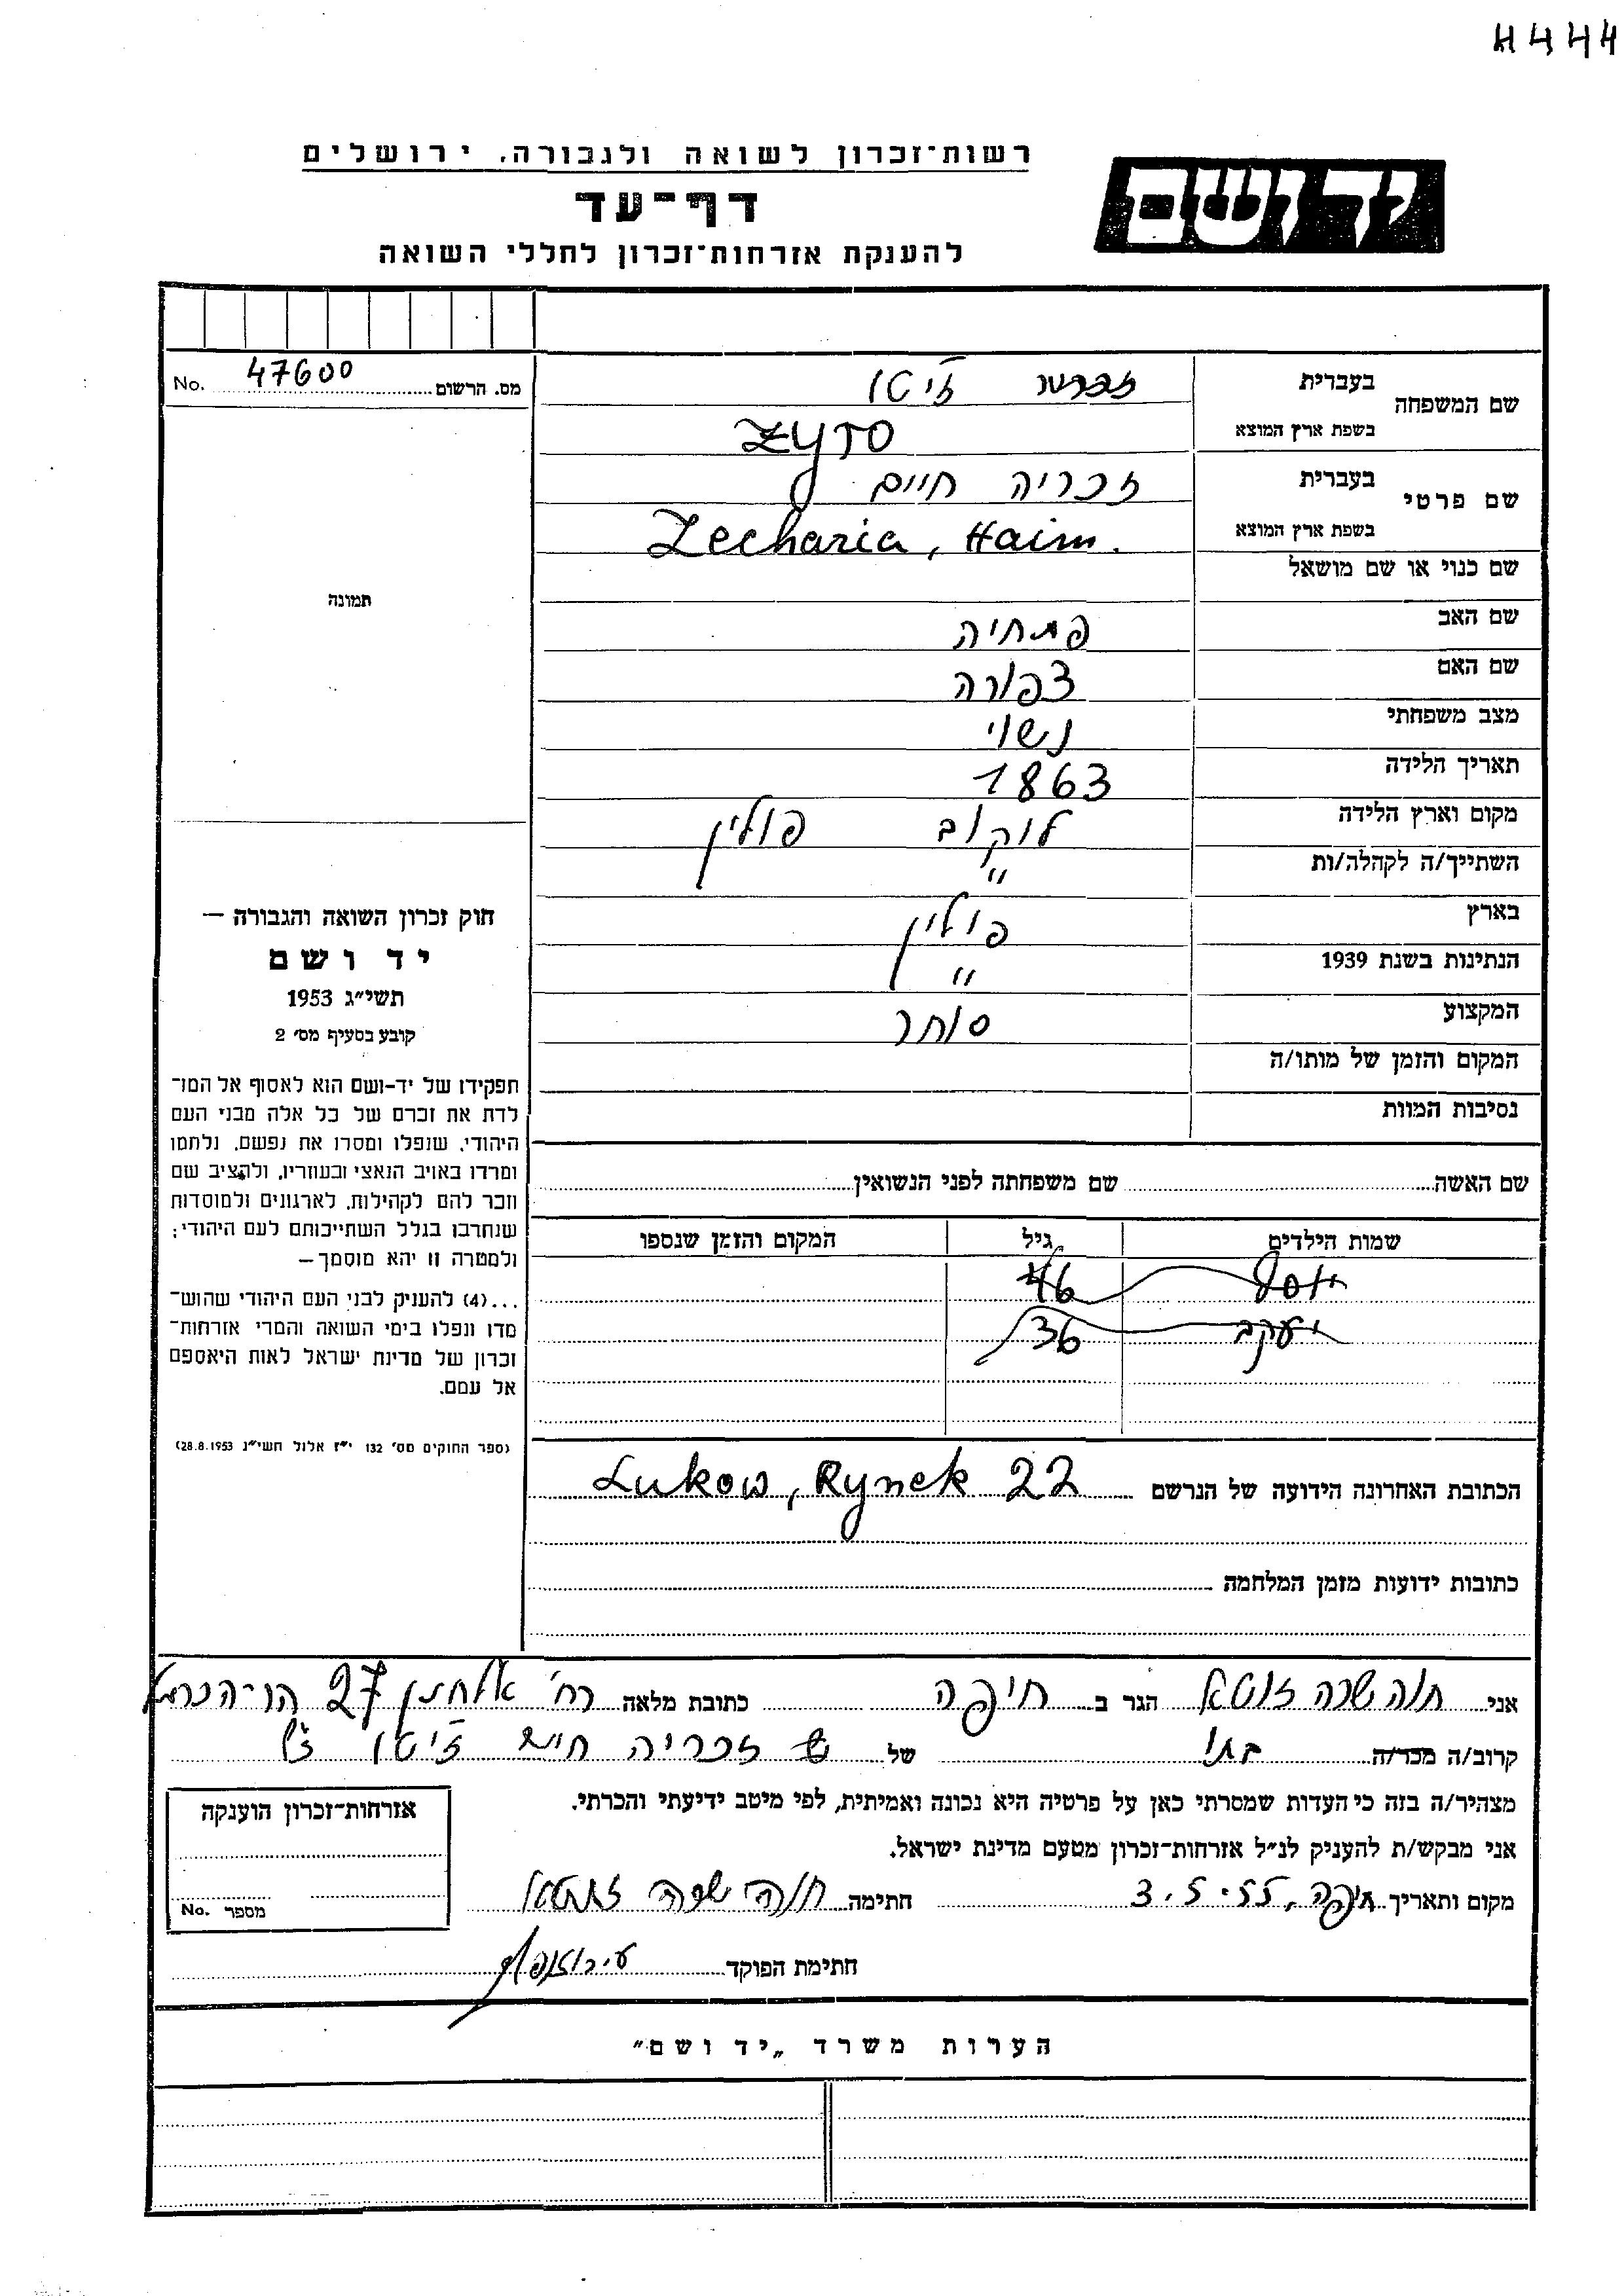 4444
רשות־זכרון לשואה ולגבורה, ירושלים
יד ושם
דף־עד
להענקת אזרחות־זכרון לחללי השואה
מס. הרשום 47600 No.
תמונה
שם המשפחה
בעברית ז'יטו
בשפת ארץ המוצא Zyto
שם פרטי
בעברית זכריה חיים
בשפת ארץ המוצא Zecharia, Haim.
שם כנוי או שם מושאל
שם האב פתחיה
שם האם צפורה
מצב משפחתי נשוי
תאריך הלידה 1863
מקום וארץ הלידה לוקוב פולין
השתייך/ה לקהלה/ות "
בארץ פולין
הנתינות בשנת 1939 "
המקצוע סוחר
המקום והזמן של מותו/ה
נסיבות המוות
חוק זכרון השואה והגבורה —
יד ושם
תשי״ג 1953
קובע בסעיף מס׳ 2
תפקידו של יד-ושם הוא לאסוף אל המו־
לדת את זכרם של כל אלה מבני העם
היהודי, שנפלו ומסרו את נפשם, נלחמו
ומרדו באויב הנאצי ובעוזריו, ולהציב שם
וזכר להם לקהילות, לארגונים ולמוסדות
שנחרבו בגלל השתייכותם לעם היהודי;
ולמטרה זו יהא מוסמך—
...(4) להעניק לבני העם היהודי שהוש־
מדו ונפלו בימי השואה והמרי אזרחות־
זכרון של מדינת ישראל לאות היאספם
אל עמם.
(ספר החוקים מס׳ 132 י״ז אלול תשי״ג 28.8.1953)
שם האשה שם משפחתה לפני הנשואין
שמות הילדים גיל המקום והזמן שנספו
יוסף 46
יעקב 36
הכתובת האחרונה הידועה של הנרשם Lukow, Rynek 22
כתובות ידועות מזמן המלחמה
אני חוה שרה הגר ב חיפה כתובת מלאה רח' אלחנן 27 הר-הכרמל
קרוב/ה מכר/ה בתו של זכריה חיים ז'יטו ז"ל
מצהיר/ה בזה כי העדות שמסרתי כאן על פרטיה היא נכונה ואמיתית, לפי מיטב ידיעתי והכרתי.
אני מבקש/ת להעניק לנ״ל אזרחות־זכרון מטעם מדינת ישראל.
מקום ותאריך חיפה, 3.5.55 חתימה חוה שרה
חתימת הפוקד
אזרחות־זכרון הוענקה
מספר No.
הערות משרד „יד ושם״